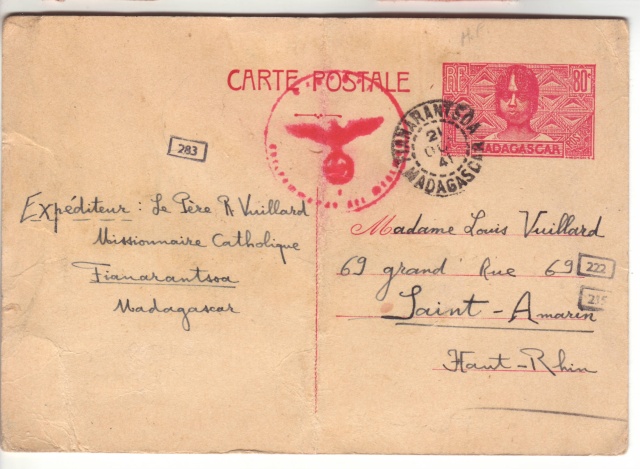 CARTE POSTALE
RF 80c
MADAGASCAR
FIANARANTSOA
21
41
MADAGASCAR
283
Expéditeur : Le Père R Vuillard
Missionnaire Catholique
Fianarantsoa
Madagascar
Madame Louis Vuillard
69 grand Rue 69
222
Saint-Amarin
215
Haut-Rhin